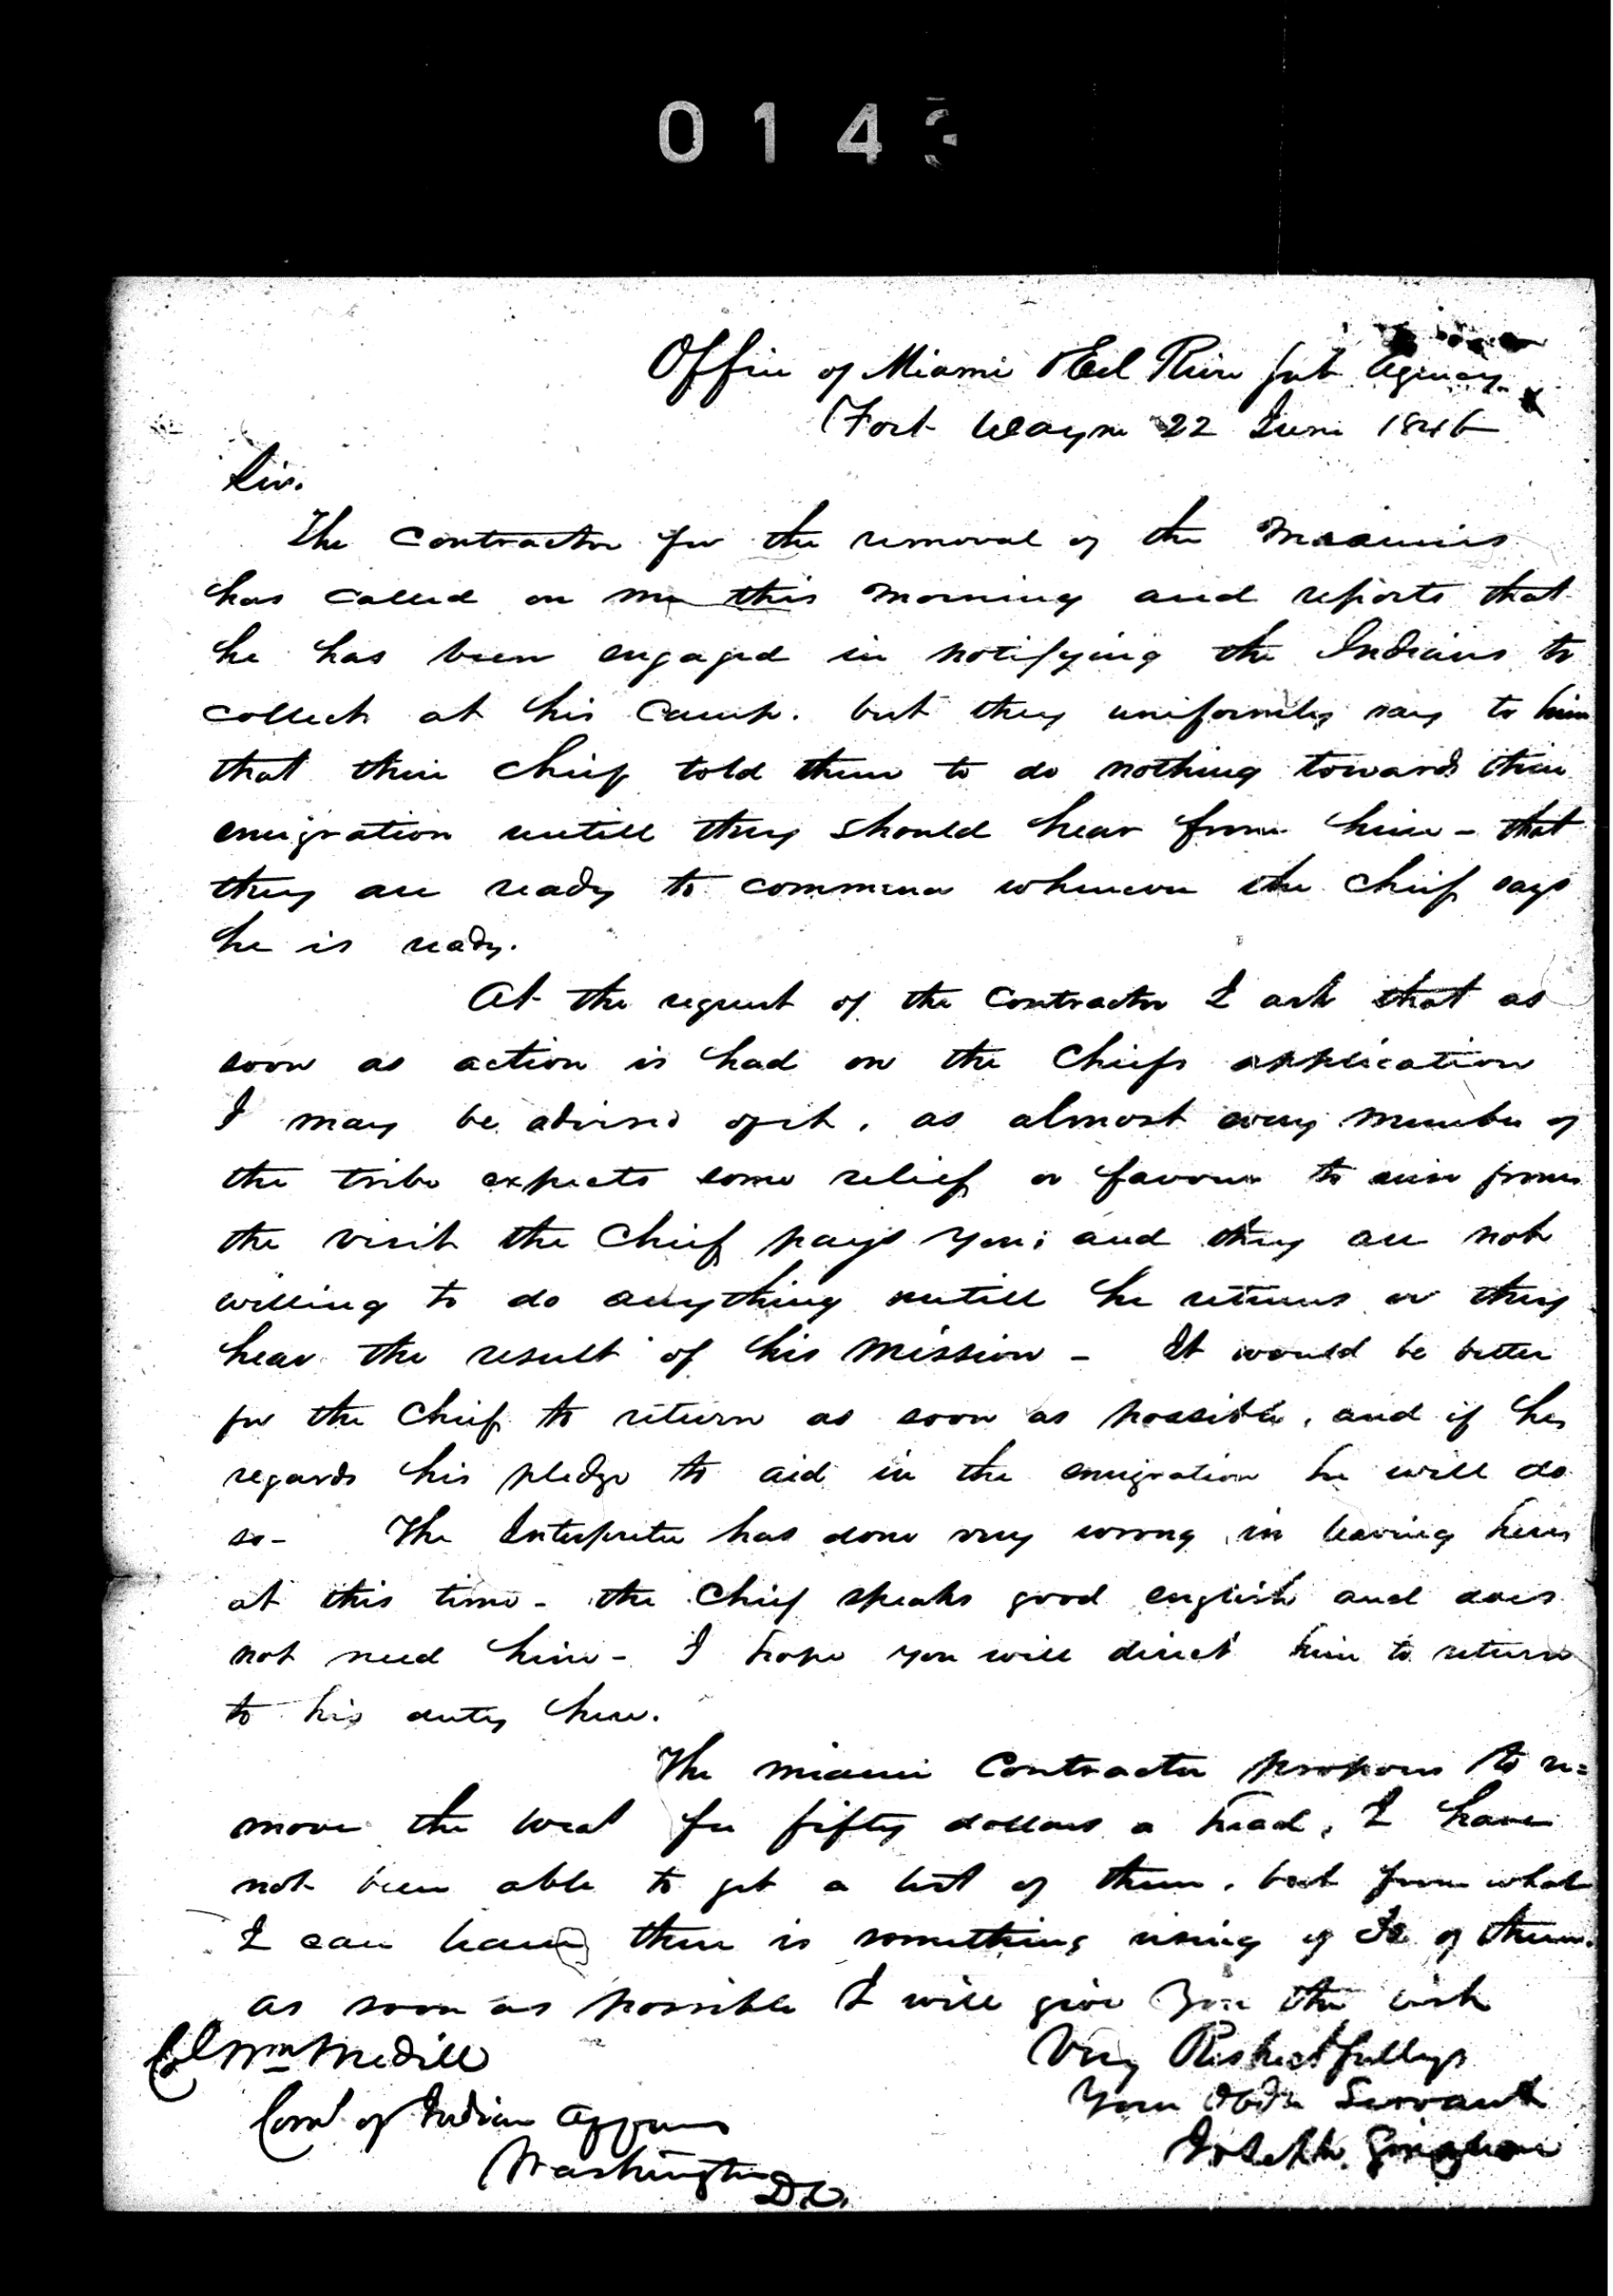 0143
Office of Miami & Eel River Sub Agency
Fort Wayne 22 June 1846
Sir.
The Contractor for the removal of the Miamies
has called on me this morning and reports that
he has been engaged in notifying the Indians to
collect at his Camp. but they uniformly say to him
that their chief told them to do nothing towards their
emigration untill they should hear from him - that
they are ready to commence whenever the chief says
he is ready.
At the request of the Contractor I ask that as
soon as action is had on the Chiefs application
I may be advised of it. as almost every member of
the tribe expects some relief or favour to arise from
the visit the Chief pays you; and they are not
willing to do anything untill he returns or they
hear the result of his mission - It would be better
for the Chief to return as soon as possible, and if he
regards his pledge to aid in the emigration he will do
so - The Interpreter has done very wrong in leaving here
at this time - the Chief speaks good english and does
not need him - I hope you will direct him to return
to his duty here.
The Miami Contractor proposes to re=
move the for fifty dollars a head, I have
not been able to get a list of them, but from what
I can learn there is something rising of of them.
as soon as possible I will give you the list
Very Respectfully
Your Obdt Servant
Joseph Sinclear
Col Wm Medill
Com of Indian Affairs
Washington
D.C.